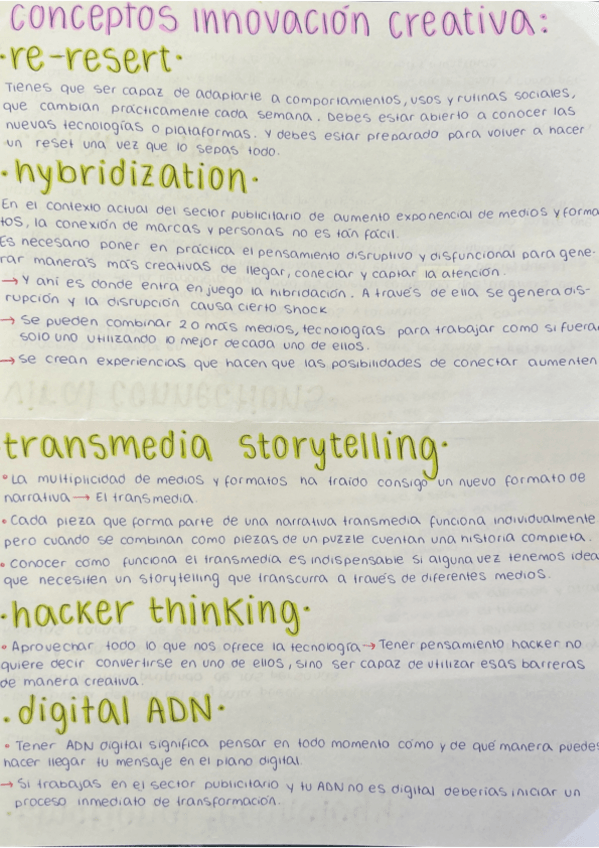 conceptos innovación creativa:
·re-resert·
Tienes que ser capaz de adaptarte a comportamientos, usos y rutinas sociales,
que cambian prácticamente cada semana. Debes estar abierto a conocer las
nuevas tecnologías o plataformas. Y debes estar preparado para volver a hacer
un reset una vez que lo sepas todo.
·hybridization·
En el contexto actual del sector publicitario de aumento exponencial de medios y forma
tos, la conexión de marcas y personas no es tan fácil.
Es necesario poner en práctica el pensamiento disruptivo y disfuncional para gene-
rar maneras más creativas de llegar, conectar y captar la atención.
→ Y ahí es donde entra en juego la hibridación. A través de ella se genera dis-
rupción y la disrupción causa cierto shock
→ Se pueden combinar 2 o más medios, tecnologías para trabajar como si fuera
solo uno utilizando lo mejor de cada uno de ellos.
→ Se crean experiencias que hacen que las posibilidades de conectar aumenten
transmedia storytelling·
• La multiplicidad de medios y formatos ha traído consigo un nuevo formato de
narrativa → El transmedia.
• Cada pieza que forma parte de una narrativa transmedia funciona individualmente
pero cuando se combinan como piezas de un puzzle cuentan una historia completa.
• Conocer como funciona el transmedia es indispensable si alguna vez tenemos idea
que necesiten un storytelling que transcurra a través de diferentes medios.
·hacker thinking·
• Aprovechar todo lo que nos ofrece la tecnología → Tener pensamiento hacker no
quiere decir convertirse en uno de ellos, sino ser capaz de utilizar esas barreras
de manera creativa.
. digital ADN·
• Tener ADN digital significa pensar en todo momento cómo y de qué manera puedes
hacer llegar tu mensaje en el plano digital.
→ Si trabajas en el sector publicitario y tu ADN no es digital deberías iniciar un
proceso inmediato de transformación.